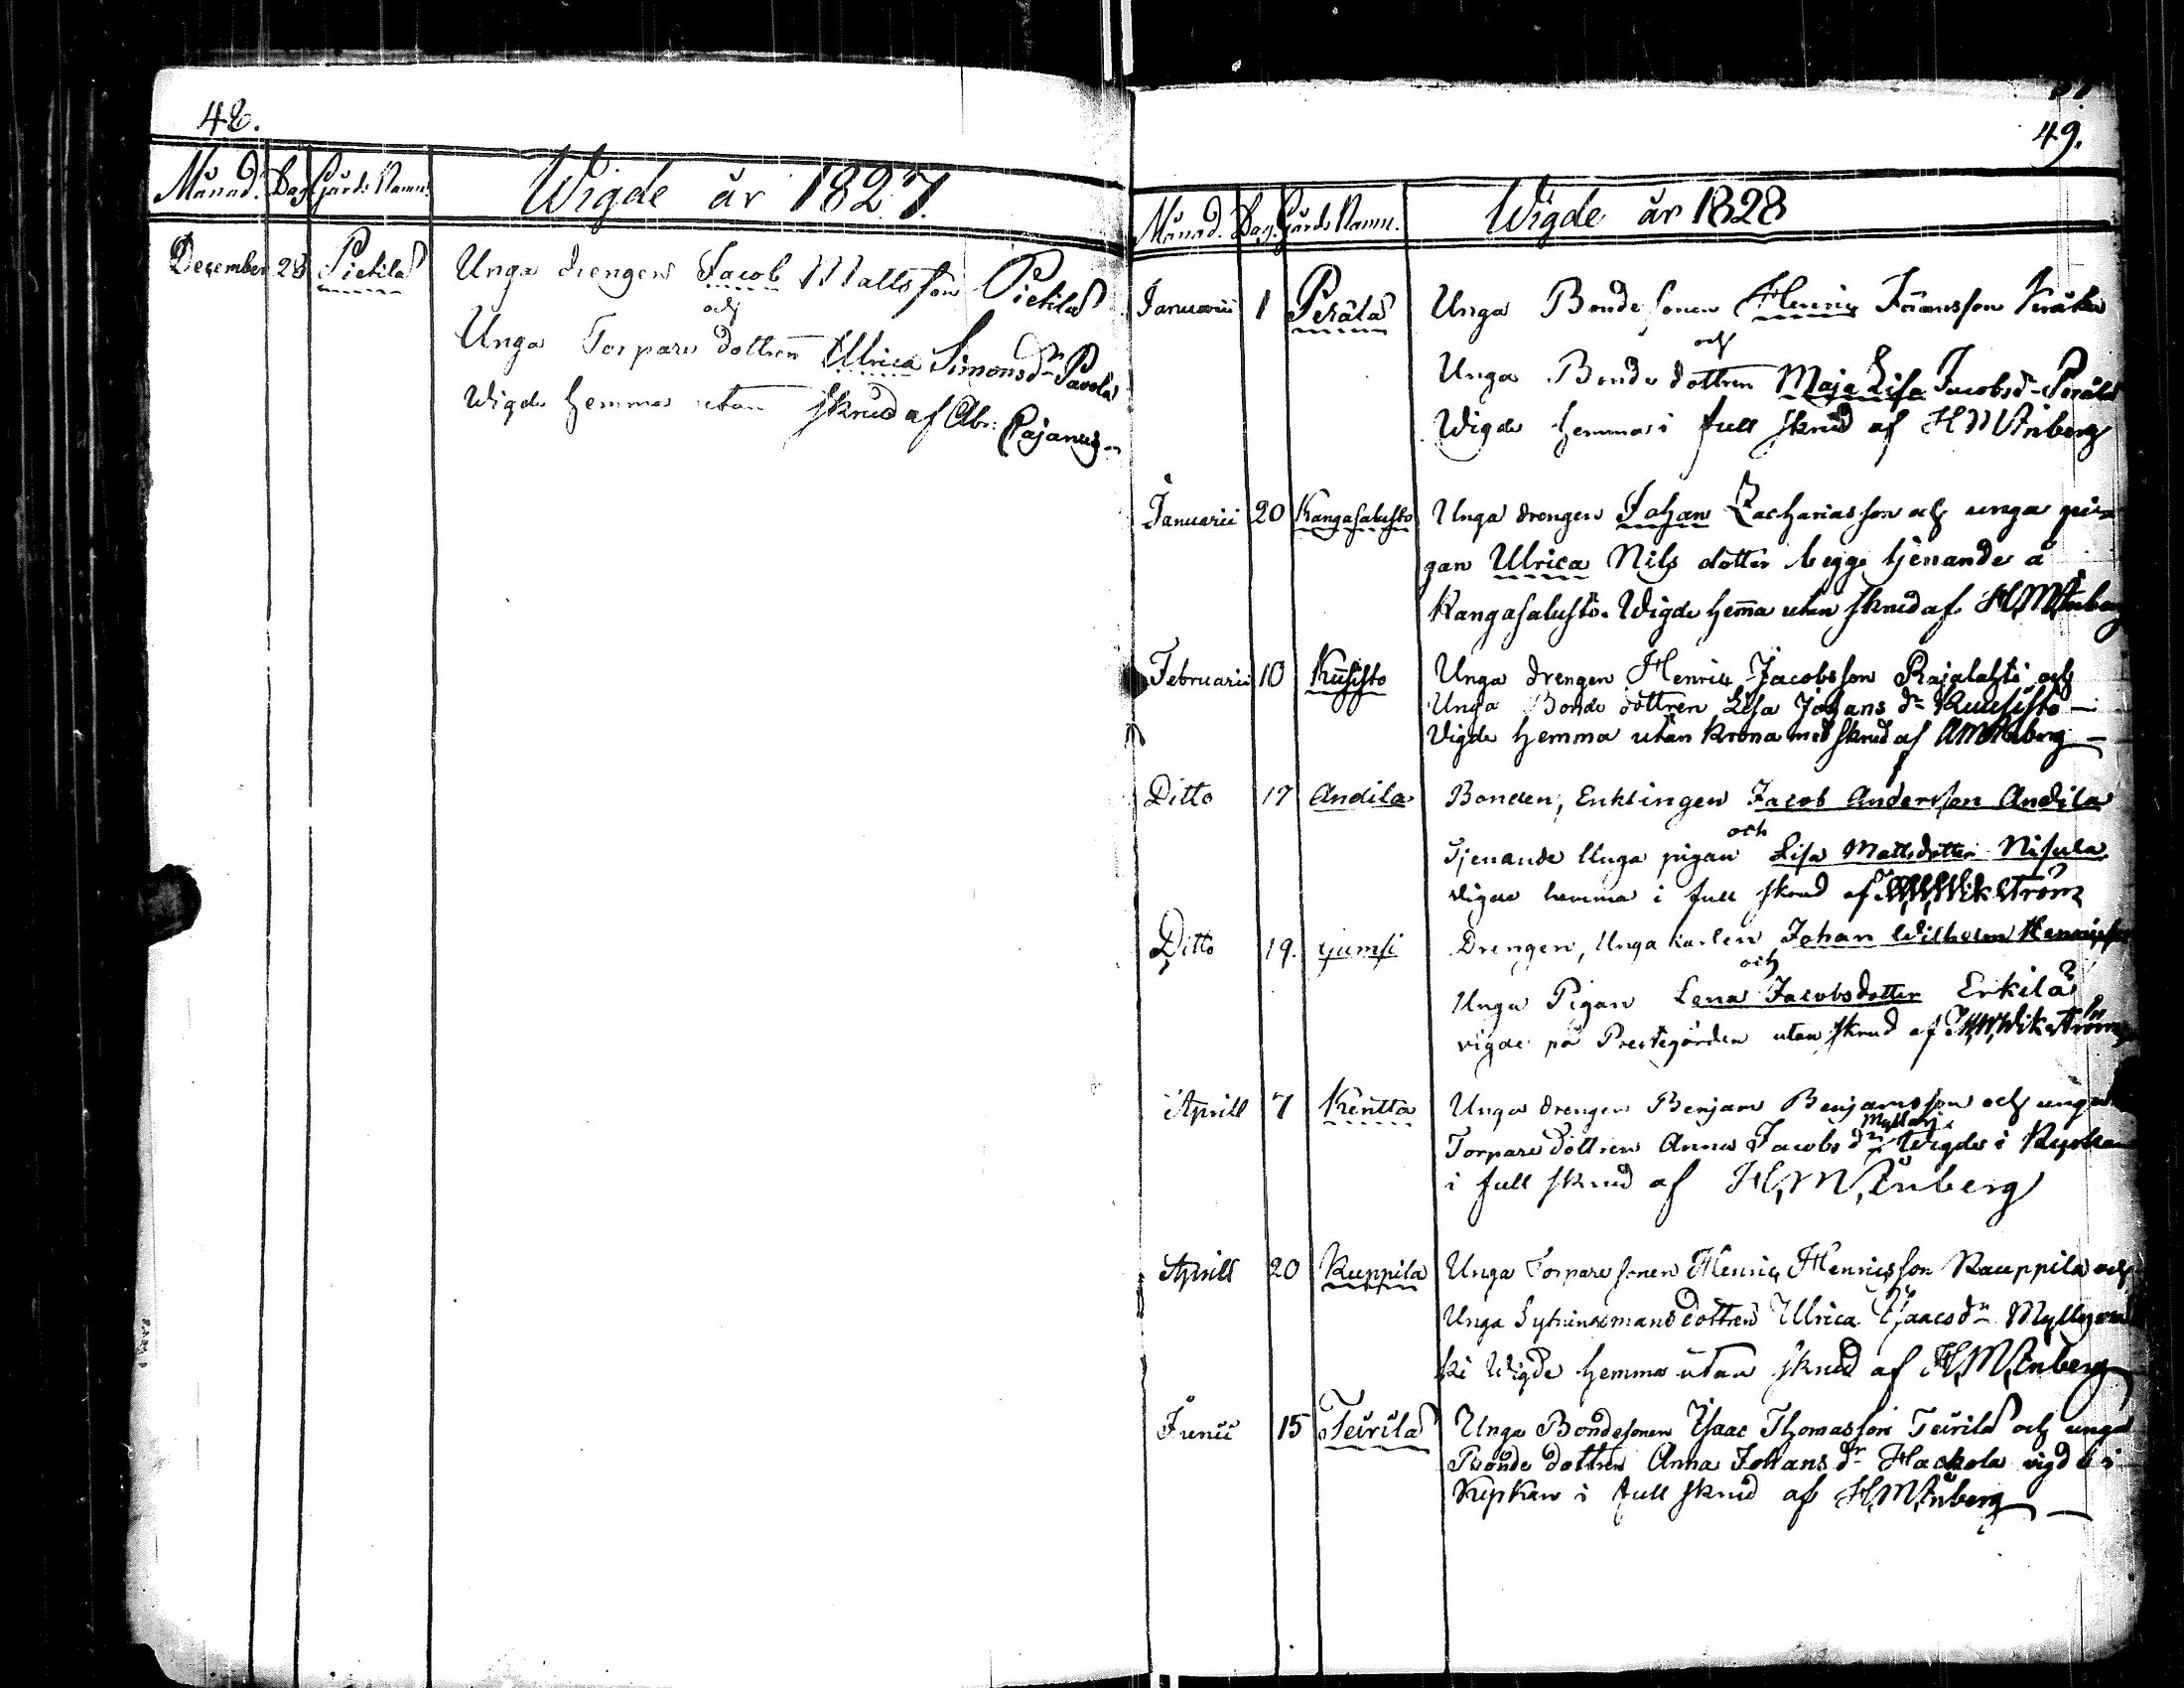 48.
Månad. Dag Gårds Namn. Wigde år 1827.
December 28 Pietilä Unga drengen Jacob Mattsson Pietilä
och
Unga Torpare dottren Ulrica Simonsdr Pavola
Wigde hemma utan skrud af Abr: Pajanus
49.
Månad. Dag. Gårds Namn. Wigde år 1828
Januarii 1 Perälä Unga Bonde sonen Henric Göransson
och
Unga Bonde dottren Maja Lisa Jacobsdr Perälä
Wigde hemma i full skrud af H M Ånberg
Januarii 20 Kangasalusto Unga drengen Johan Zachariasson och unga pi-
gan Ulrica Nils dotter begge tjenande å
Kangasalusto. Wigde hema utan skrud af H,M,Ånberg
Februarii 10 Kusisto Unga drengen Henric Jacobsson Rajalahti och
Unga Bonde dottren Lisa Johans dr Kuusisto
Vigde hemma utan Krona med skrud af HMÅnberg
Ditto 17 Andila Bonden, Enklingen Jacob Andersson Andila
och
Tjenande Unga pigan Lisa Mattsdotter Nisula
vigde hemma i full skrud af Wikström
Ditto 19. yumsi Drengen, Unga karlen Johan Wilhelm Henricsson
och
Unga Pigan Lena Jacobsdotter Erkilä
vigde på Prestegården utan skrud af Wikström
Aprill 7 Kenttä Unga drengen Benjam Benjamsson och unga
Torpare dottren Anna Jacobs dr Wigde i Kyrkan
i full skrud af H,M,Ånberg
Aprill 20 Kuppila Unga Torpare sonen Henric Henricsson Kauppila och
Unga Sytningsmans dottren Ulrica Isaacs dr
ki Wigde hemma utan skrud af H,M,Ånberg
Junii 15 Teirilä Unga Bondesonen Isaac Thomasson Teirilä och unga
Bonde dottren Anna Johans dr Hackola vigde i
Kyrkan i full skrud af H,M,Ånberg